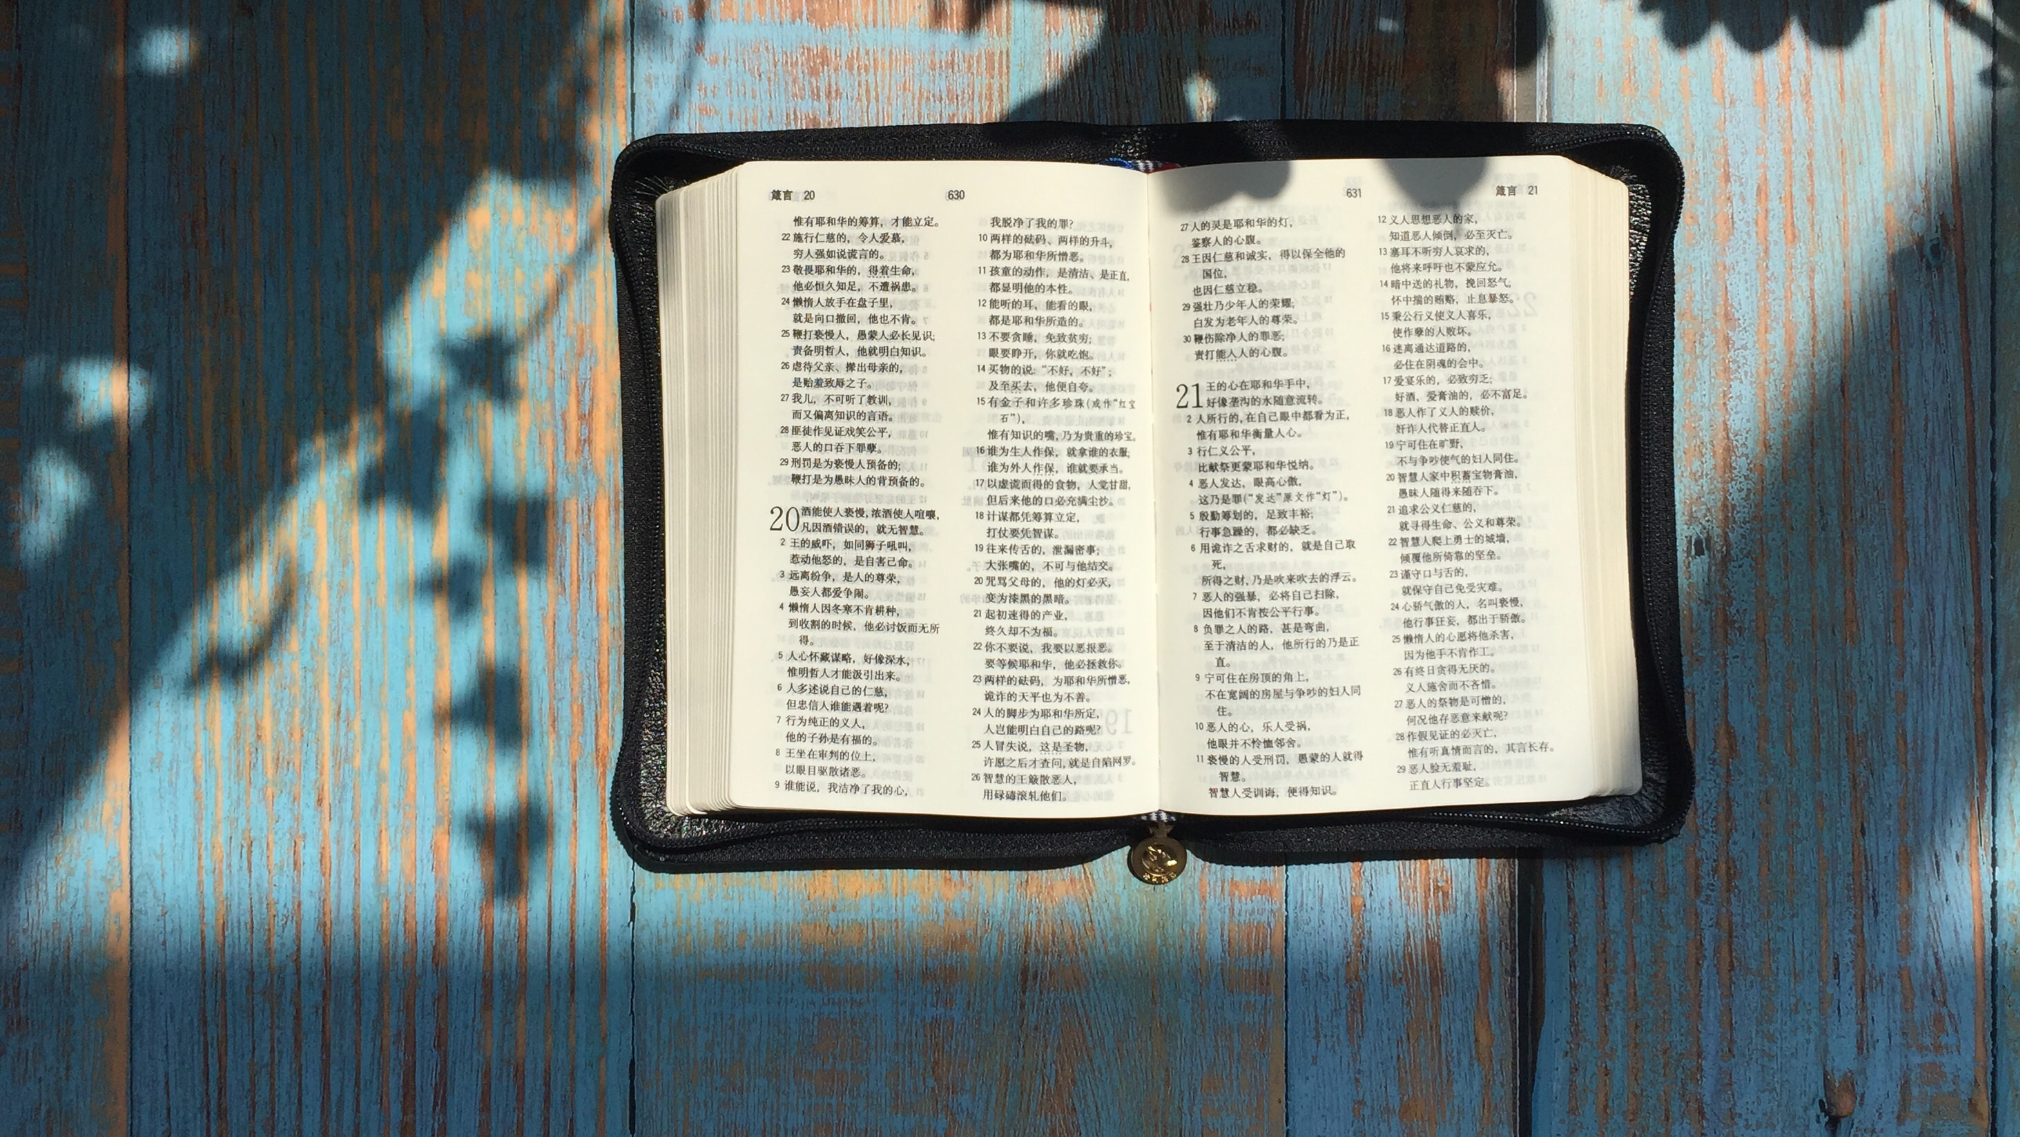 箴言 20
630
惟有耶和华的筹算，才能立定。
22 施行仁慈的，令人爱慕，
穷人强如说谎言的。
23 敬畏耶和华的，得着生命，
他必恒久知足，不遭祸患。
24 懒惰人放手在盘子里，
就是向口撤回，他也不肯。
25 鞭打亵慢人，愚蒙人必长见识；
责备明哲人，他就明白知识。
26 虐待父亲、撵出母亲的，
是贻羞致辱之子。
27 我儿，不可听了教训，
而又偏离知识的言语。
28 匪徒作见证戏笑公平，
恶人的口吞下罪孽。
29 刑罚是为亵慢人预备的；
鞭打是为愚昧人的背预备的。
20 酒能使人亵慢，浓酒使人喧嚷，
凡因酒错误的，就无智慧。
2 王的威吓，如同狮子吼叫，
惹动他怒的，是自害己命。
3 远离纷争，是人的尊荣，
愚妄人都爱争闹。
4 懒惰人因冬寒不肯耕种，
到收割的时候，他必讨饭而无所
得。
5 人心怀藏谋略，好像深水，
惟明哲人才能汲引出来。
6 人多述说自己的仁慈，
但忠信人谁能遇着呢？
7 行为纯正的义人，
他的子孙是有福的。
8 王坐在审判的位上，
以眼目驱散诸恶。
9 谁能说，我洁净了我的心，
我脱净了我的罪？
10 两样的砝码、两样的升斗，
都为耶和华所憎恶。
11 孩童的动作，是清洁、是正直，
都显明他的本性。
12 能听的耳，能看的眼，
都是耶和华所造的。
13 不要贪睡，免致贫穷；
眼要睁开，你就吃饱。
14 买物的说：“不好，不好”；
及至买去，他便自夸。
15 有金子和许多珍珠（或作“红宝
石”），
惟有知识的嘴，乃为贵重的珍宝。
16 谁为生人作保，就拿谁的衣服；
谁为外人作保，谁就要承当。
17 以虚谎而得的食物，人觉甘甜，
但后来他的口必充满尘沙。
18 计谋都凭筹算立定，
打仗要凭智谋。
19 往来传舌的，泄漏密事；
大张嘴的，不可与他结交。
20 咒骂父母的，他的灯必灭，
变为漆黑的黑暗。
21 起初速得的产业，
终久却不为福。
22 你不要说，我要以恶报恶。
要等候耶和华，他必拯救你。
23 两样的砝码，为耶和华所憎恶，
诡诈的天平也为不善。
24 人的脚步为耶和华所定，
人岂能明白自己的路呢？
25 人冒失说，这是圣物，
许愿之后才查问，就是自陷网罗。
26 智慧的王簸散恶人，
用碌碡滚轧他们。
631
箴言 21
27 人的灵是耶和华的灯，
鉴察人的心腹。
28 王因仁慈和诚实，得以保全他的
国位，
也因仁慈立稳。
29 强壮乃少年人的荣耀；
白发为老年人的尊荣。
30 鞭伤除净人的罪恶；
责打能入人的心腹。
21 王的心在耶和华手中，
好像垄沟的水随意流转。
2 人所行的，在自己眼中都看为正，
惟有耶和华衡量人心。
3 行仁义公平，
比献祭更蒙耶和华悦纳。
4 恶人发达，眼高心傲，
这乃是罪（“发达”原文作“灯”）。
5 殷勤筹划的，足致丰裕；
行事急躁的，都必缺乏。
6 用诡诈之舌求财的，就是自己取
死，
所得之财，乃是吹来吹去的浮云。
7 恶人的强暴，必将自己扫除，
因他们不肯按公平行事。
8 负罪之人的路，甚是弯曲，
至于清洁的人，他所行的乃是正
直。
9 宁可住在房顶的角上，
不在宽阔的房屋与争吵的妇人同
住。
10 恶人的心，乐人受祸，
他眼并不怜恤邻舍。
11 亵慢的人受刑罚，愚蒙的人就得
智慧。
智慧人受训诲，便得知识。
12 义人思想恶人的家，
知道恶人倾倒，必至灭亡。
13 塞耳不听穷人哀求的，
他将来呼吁也不蒙应允。
14 暗中送的礼物，挽回怒气，
怀中搋的贿赂，止息暴怒。
15 秉公行义使义人喜乐，
使作孽的人败坏。
16 迷离通达道路的，
必住在阴魂的会中。
17 爱宴乐的，必致穷乏；
好酒，爱膏油的，必不富足。
18 恶人作了义人的赎价，
奸诈人代替正直人。
19 宁可住在旷野，
不与争吵使气的妇人同住。
20 智慧人家中积蓄宝物膏油，
愚昧人随得来随吞下。
21 追求公义仁慈的，
就寻得生命、公义和尊荣。
22 智慧人爬上勇士的城墙，
倾覆他所倚靠的坚垒。
23 谨守口与舌的，
就保守自己免受灾难。
24 心骄气傲的人，名叫亵慢，
他行事狂妄，都出于骄傲。
25 懒惰人的心愿将他杀害，
因为他手不肯作工。
26 有终日贪得无厌的，
义人施舍而不吝惜。
27 恶人的祭物是可憎的，
何况他存恶意来献呢？
28 作假见证的必灭亡，
惟有听真情而言的，其言长存。
29 恶人脸无羞耻，
正直人行事坚定。